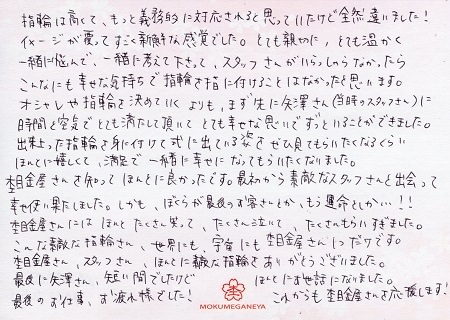 指輪は高くて、もっと義務的に対応されると思っていたけど全然違いました!
イメージが覆ってすごく新鮮な感覚でした。とても親切に、とても温かく
一緒に悩んで、一緒に考えて下さって、スタッフさんがいらっしゃらなかったら
こんなにも幸せな気持ちで指輪を指に付けることはなかったと思います。
オシャレや指輪を決めていくよりも、まず先に矢澤さん(当時のスタッフさん)に
時間と空気でとても満たして頂いてとても幸せな思いでずっといることができました。
出来上った指輪を身に付けて式に出ている姿をぜひ見てもらいたくなるくらい
ほんとに嬉しくて、満足で一緒に幸せになってもらいたくなりました。
杢目金屋さんを知ってほんとに良かったです。最初から素敵なスタッフさんと出会って
幸せ使い果たしました。しかも、ぼくらが最後のお客さんとか、もう運命としか…!!
杢目金屋さんにはほんとたくさん笑って、たくさん泣いて、たくさんもらいすぎました。
こんな素敵な指輪さん、世界にも、宇宙にも杢目金屋さん1つだけです。
杢目金屋さん、スタッフさん、ほんとに素敵な指輪をありがとうございました。
最後に矢澤さん、短い間でしたけど ほんとにお世話になりました。
最後のお仕事、お疲れ様でした! これからも杢目金屋さんを応援します!
MOKUMEGANEYA